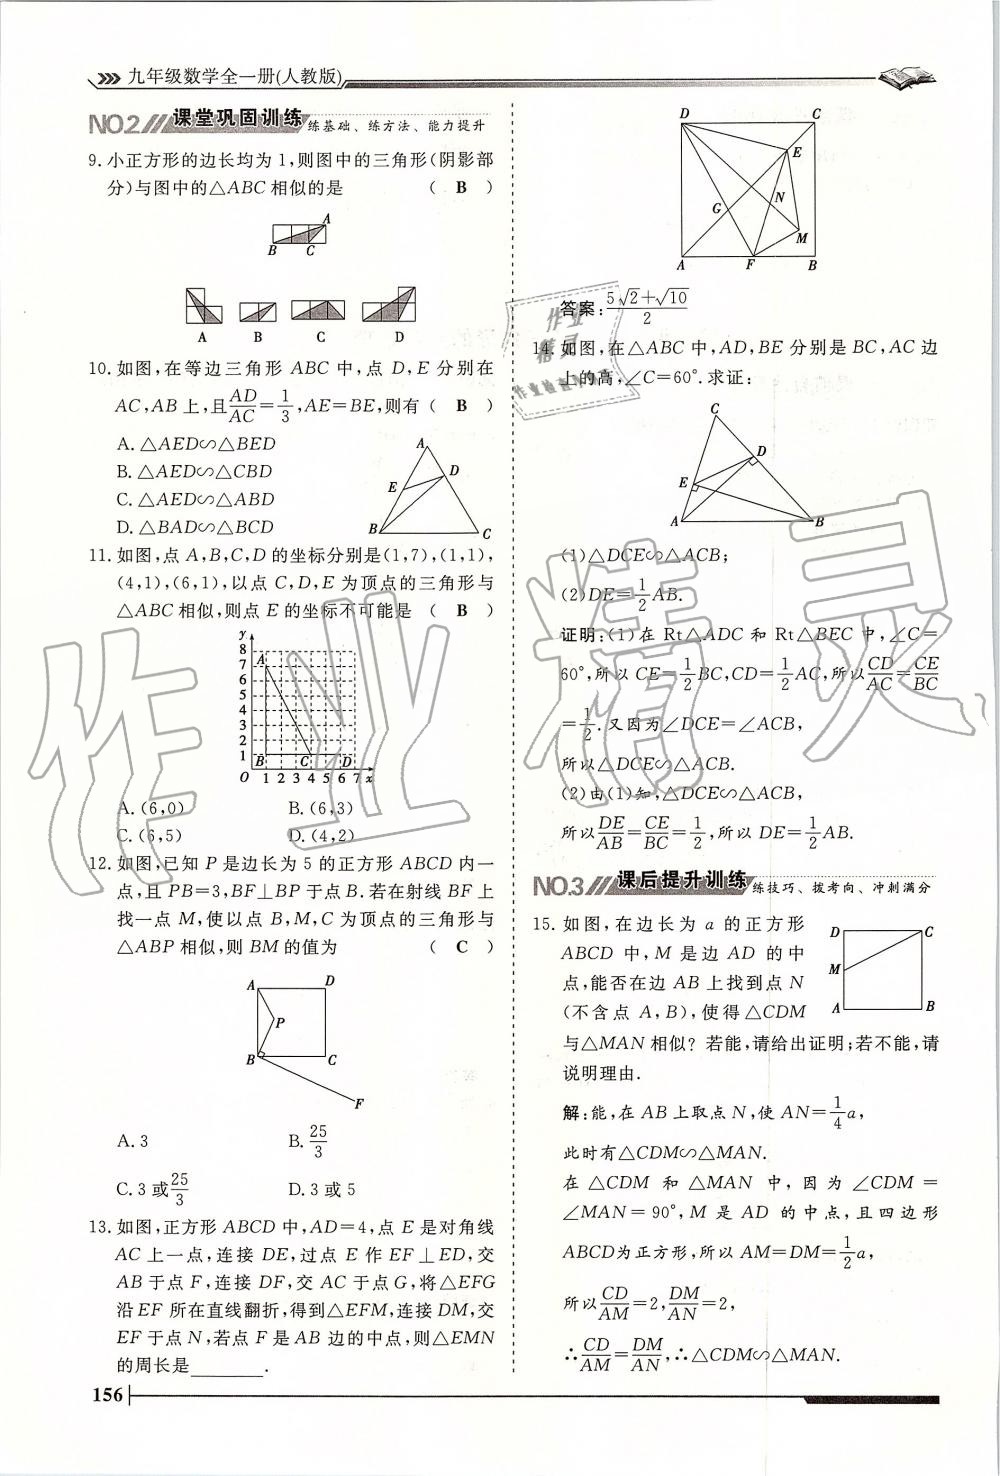 九年级数学全一册(人教版)
NO.2 课堂巩固训练 练基础、练方法、能力提升
9. 小正方形的边长均为 1,则图中的三角形(阴影部
分)与图中的△ABC 相似的是 ( B )
A
B C
A B C D
10. 如图,在等边三角形 ABC 中,点 D,E 分别在
AC,AB 上,且AD/AC=1/3,AE=BE,则有( B )
A. △AED∽△BED
B. △AED∽△CBD
C. △AED∽△ABD
D. △BAD∽△BCD
A
D
E
B C
11. 如图,点 A,B,C,D 的坐标分别是(1,7),(1,1),
(4,1),(6,1),以点 C,D,E 为顶点的三角形与
△ABC 相似,则点 E 的坐标不可能是 ( B )
y
8
7 A
6
5
4
3
2
1 B C D
O 1 2 3 4 5 6 7 x
A. (6,0) B. (6,3)
C. (6,5) D. (4,2)
12. 如图,已知 P 是边长为 5 的正方形 ABCD 内一
点,且 PB=3,BF⊥BP 于点 B. 若在射线 BF 上
找一点 M,使以点 B,M,C 为顶点的三角形与
△ABP 相似,则 BM 的值为 ( C )
A D
P
B C
F
A. 3 B. 25/3
C. 3 或25/3 D. 3 或 5
13. 如图,正方形 ABCD 中,AD=4,点 E 是对角线
AC 上一点,连接 DE,过点 E 作 EF⊥ED,交
AB 于点 F,连接 DF,交 AC 于点 G,将△EFG
沿 EF 所在直线翻折,得到△EFM,连接 DM,交
EF 于点 N,若点 F 是 AB 边的中点,则△EMN
的周长是________.
156
D C
E
G N
M
A F B
答案:(5√2+√10)/2
14. 如图,在△ABC 中,AD,BE 分别是 BC,AC 边
上的高,∠C=60°. 求证:
C
D
E
A B
(1)△DCE∽△ACB;
(2)DE=1/2AB.
证明:(1)在 Rt△ADC 和 Rt△BEC 中,∠C=
60°,所以 CE=1/2BC,CD=1/2AC,所以CD/AC=CE/BC
=1/2. 又因为∠DCE=∠ACB,
所以△DCE∽△ACB.
(2)由(1)知,△DCE∽△ACB,
所以DE/AB=CE/BC=1/2,所以 DE=1/2AB.
NO.3 课后提升训练 练技巧、拔考向、冲刺满分
15. 如图,在边长为 a 的正方形
ABCD 中,M 是边 AD 的中
点,能否在边 AB 上找到点 N
(不含点 A,B),使得△CDM
与△MAN 相似?若能,请给出证明;若不能,请
说明理由.
D C
M
A B
解:能,在 AB 上取点 N,使 AN=1/4a,
此时有△CDM∽△MAN.
在△CDM 和△MAN 中,因为∠CDM=
∠MAN=90°,M 是 AD 的中点,且四边形
ABCD为正方形,所以 AM=DM=1/2a,
所以CD/AM=2,DM/AN=2,
∴CD/AM=DM/AN,∴△CDM∽△MAN.
作业精灵
作业
精灵